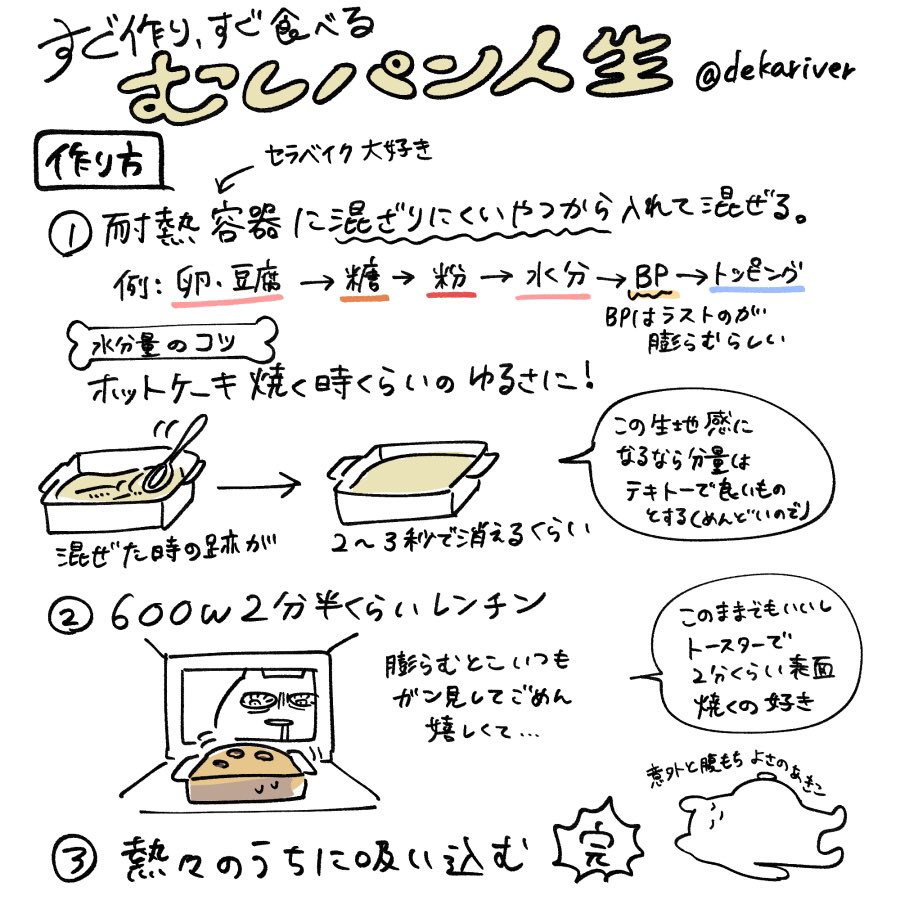 すぐ作り、すぐ食べる
むしパン人生
@dekariver
作り方
セラベイク大好き
① 耐熱容器に混ざりにくいやつから入れて混ぜる。
例：卵・豆腐→糖→粉→水分→BP→トッピング
BPはラストのが
膨らむらしい
水分量のコツ
ホットケーキ焼く時くらいのゆるさに！
この生地感に
なるなら分量は
テキトーで良いもの
とする（めんどいので）
混ぜた時の跡が
2〜3秒で消えるくらい
② 600w2分半くらいレンチン
膨らむとこいつも
ガン見してごめん
嬉しくて…
このままでもいいし
トースターで
2分くらい表面
焼くの好き
意外と腹もちよさのあきこ
③ 熱々のうちに吸い込む
完